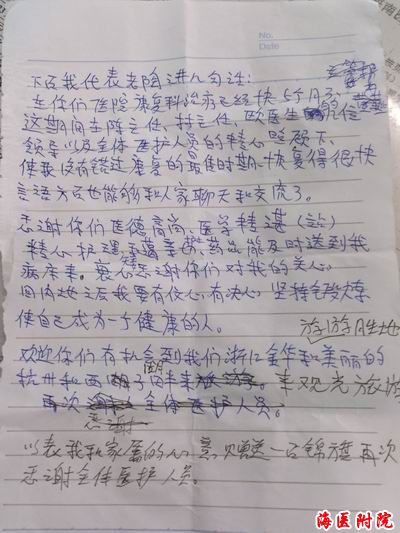 No.
Date
下面我代表老陶进几句话：
在你们医院康复科治疗已经快5个月了，
这期间在陈主任、符主任、欧医生
领导以及全体医护人员的精心照顾下，
使我没有错过康复的最佳时期，恢复得很快
言语方面也能够和人家聊天和交流了。
感谢你们医德高尚、医学精湛
精心护理，药品能及时送到我
病床来。衷心感谢你们对我的关心，
回到地之后我要有信心，有决心，坚持锻炼
使自己成为一个健康的人。
游游胜地
欢迎你们有机会到我们浙江金华和美丽的
杭州和西湖 来观光旅游
再次 全体医护人员。
感谢
以表我和家属的心意，赠送一面锦旗再次
感谢全体医护人员。
海医附院